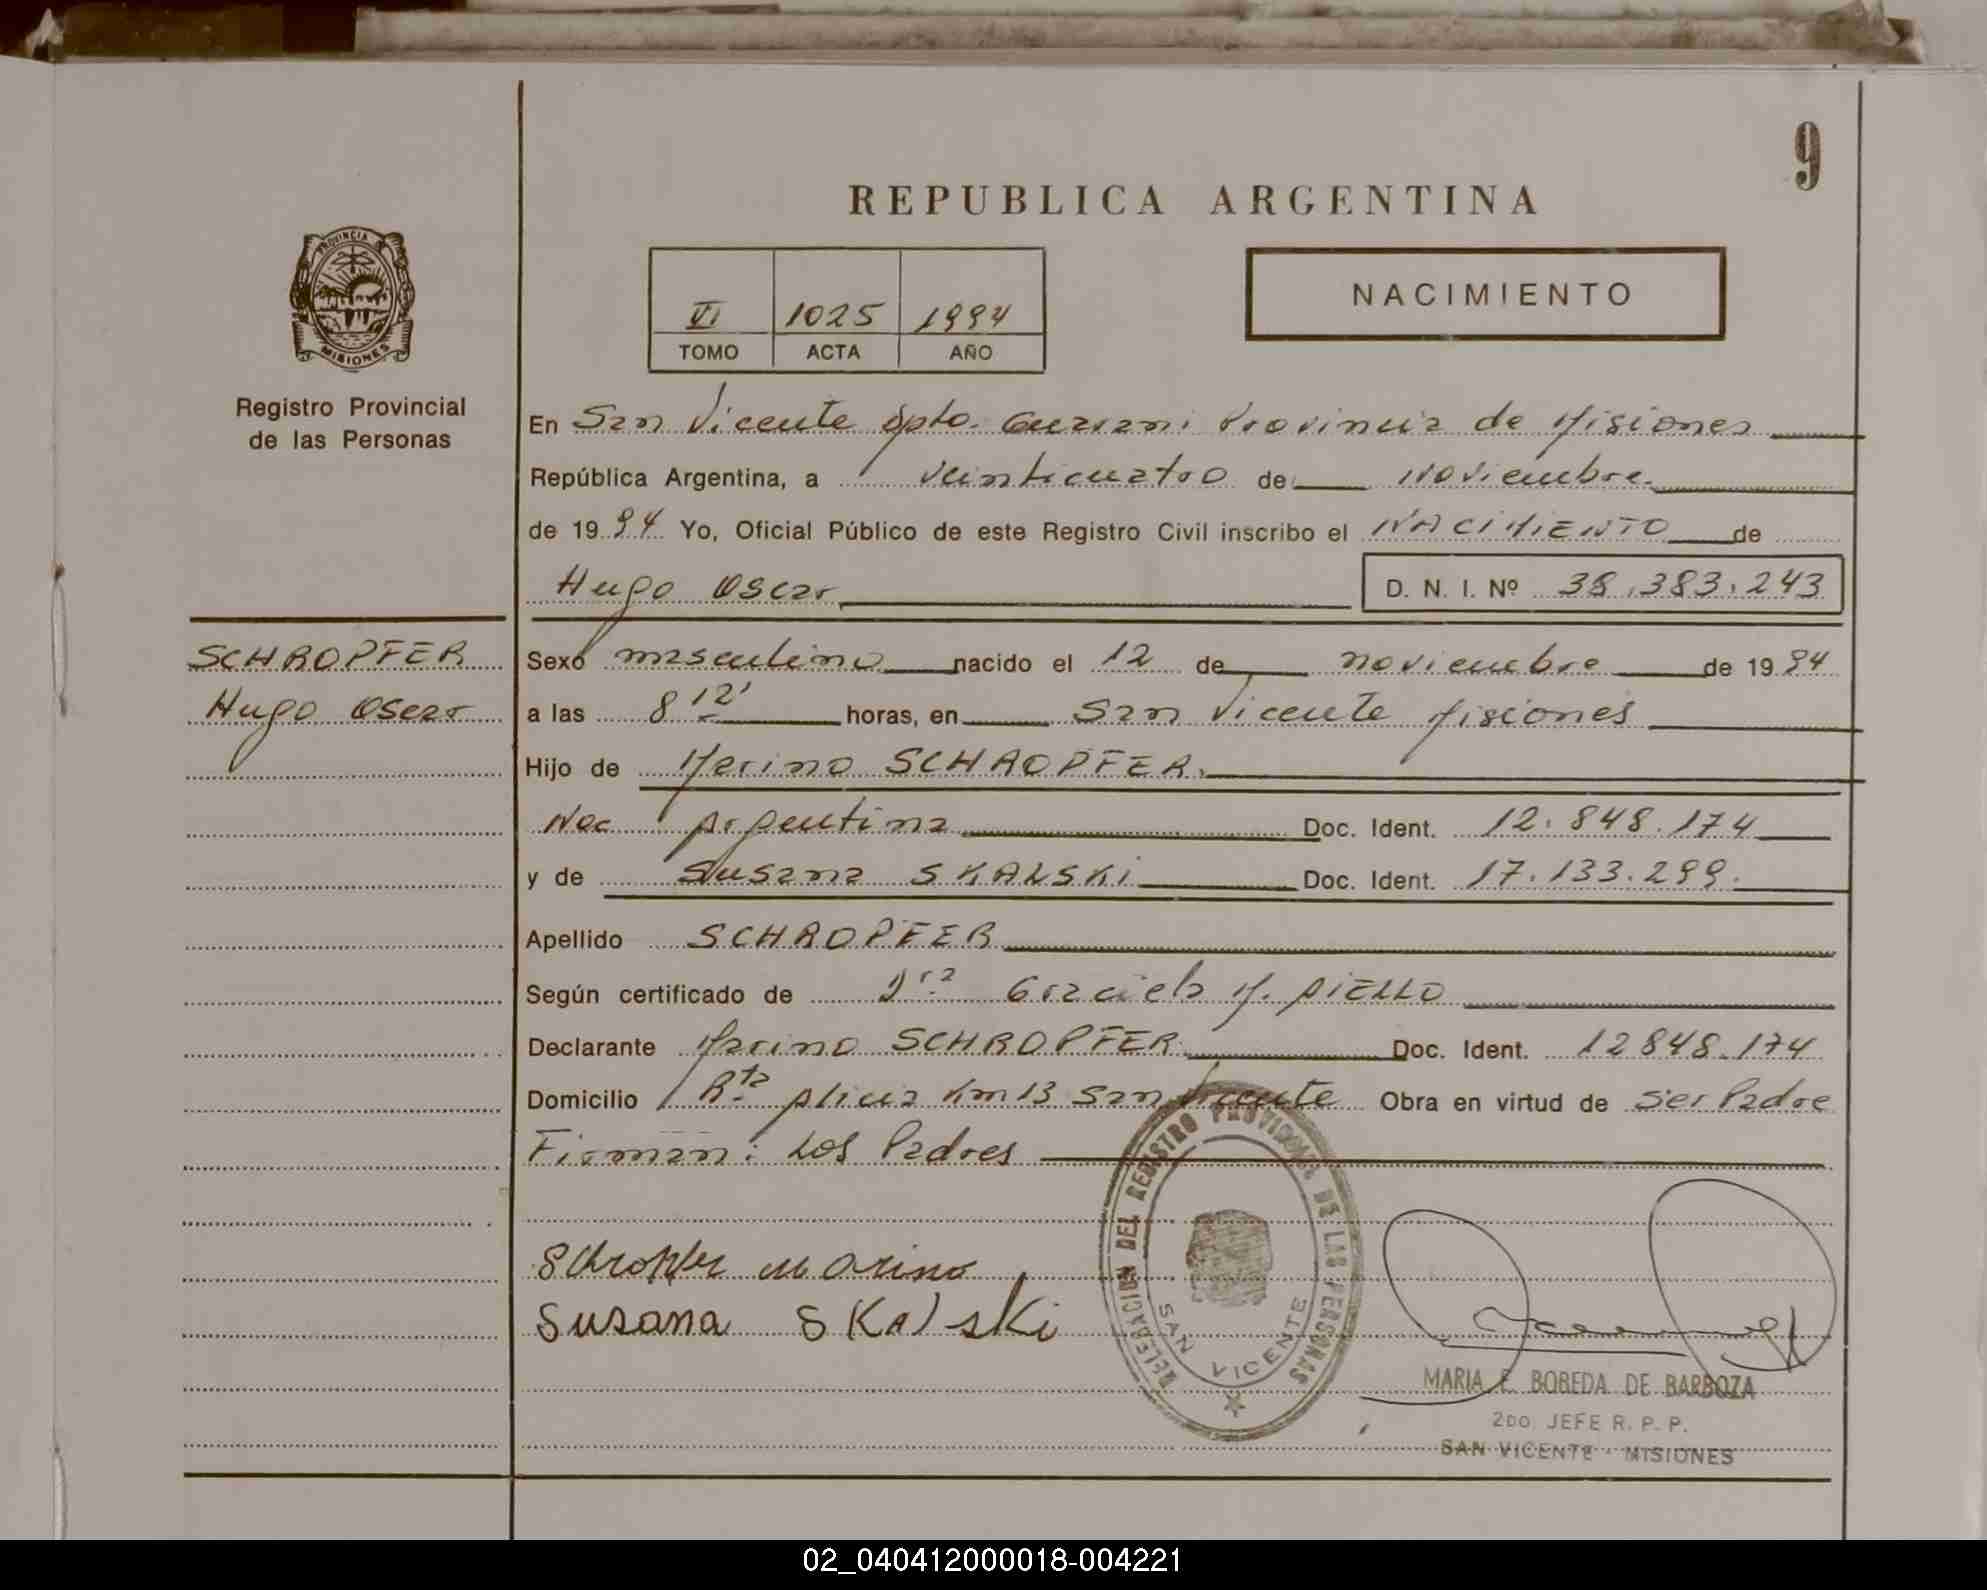 9
REPUBLICA ARGENTINA
PROVINCIA
MISIONES
VI 1025 1994
TOMO ACTA AÑO
NACIMIENTO
Registro Provincial
de las Personas
En San Vicente Dpto. Guarani Provincia de Misiones
República Argentina, a veinticuatro de noviembre
de 1994 Yo, Oficial Público de este Registro Civil inscribo el NACIMIENTO de
Hugo Oscar D. N. I. Nº 38.383.243
SCHROPFER
Hugo Oscar
Sexo masculino nacido el 12 de noviembre de 1994
a las 8 12' horas, en San Vicente Misiones
Hijo de Merino SCHROPFER.
Nac Argentina Doc. Ident. 12.848.174
y de Susana SKALSKi Doc. Ident. 17.133.299.
Apellido SCHROPFER
Según certificado de Dra Graciela M. AiELLO
Declarante Marino SCHROPFER Doc. Ident. 12848.174
Domicilio Rta Alicia Km 13 San Vicente Obra en virtud de ser Padre
Firman: Los Padres
Schropfer Marino
Susana SKalski
DELEGACION DEL REGISTRO PROVINCIAL DE LAS PERSONAS
SAN VICENTE
MARIA E. BOBEDA DE BARBOZA
2DO. JEFE R. P. P.
SAN VICENTE - MISIONES
02_040412000018-004221